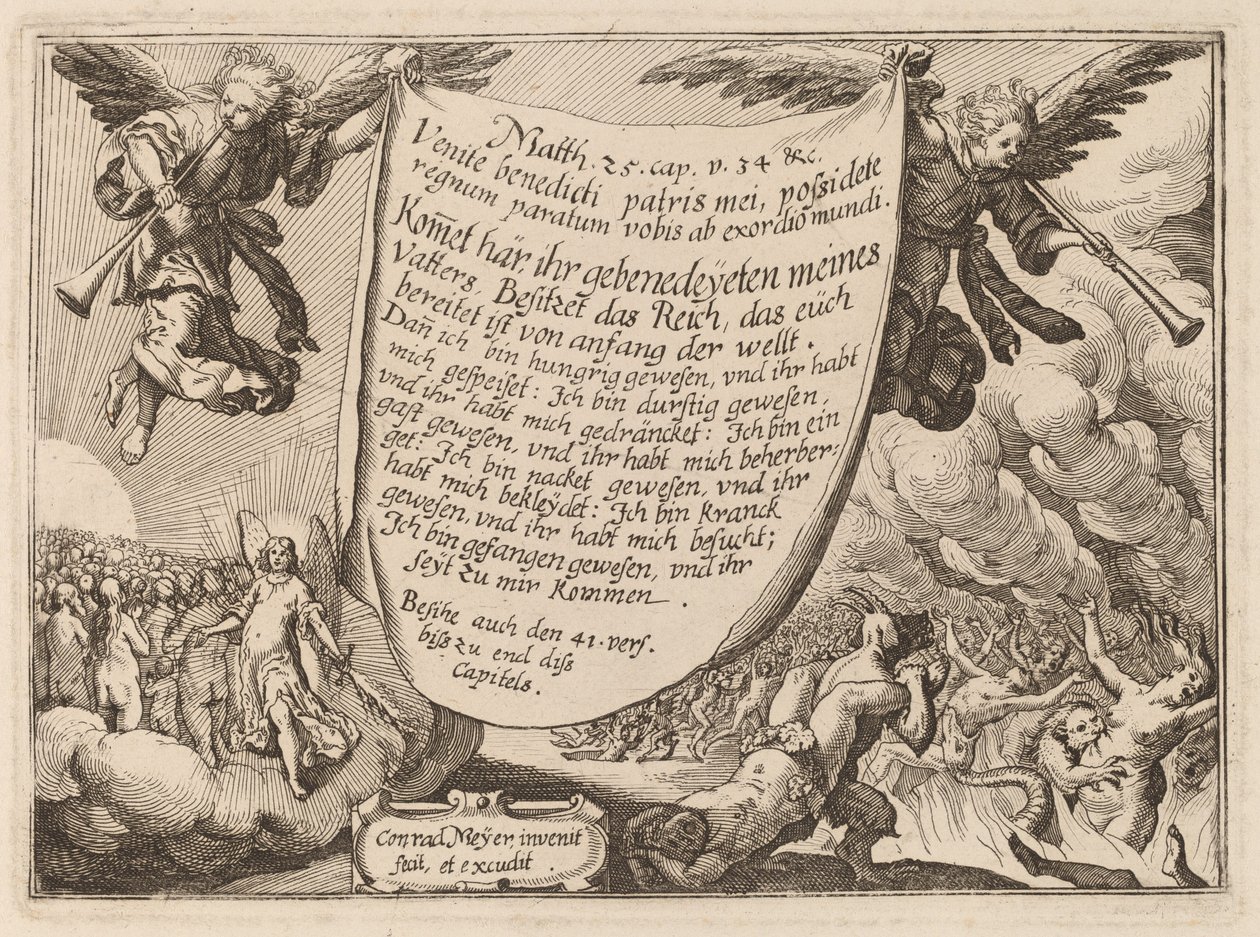 Matth. 25. cap. v. 34 &c.
Venite benedicti patris mei, possidete
regnum paratum vobis ab exordio mundi.
Kom̄et här, ihr gebenedeÿeten meines
Vatters, Besitzet das Reich, das eüch
bereitet ist von anfang der wellt.
Dan̄ ich bin hungrig gewesen, vnd ihr habt
mich gespeiset: Ich bin durstig gewesen,
vnd ihr habt mich gedräncket: Ich bin ein
gast gewesen, vnd ihr habt mich beherber:
get: Ich bin nacket gewesen, vnd ihr
habt mich bekleÿdet: Ich bin Kranck
gewesen, vnd ihr habt mich besucht;
Ich bin gefangen gewesen, vnd ihr
seÿt zu mir Kommen.
Besihe auch den 41. vers.
biß zu end diß
Capitels.
Conrad Meÿer, invenit
fecit, et excudit.